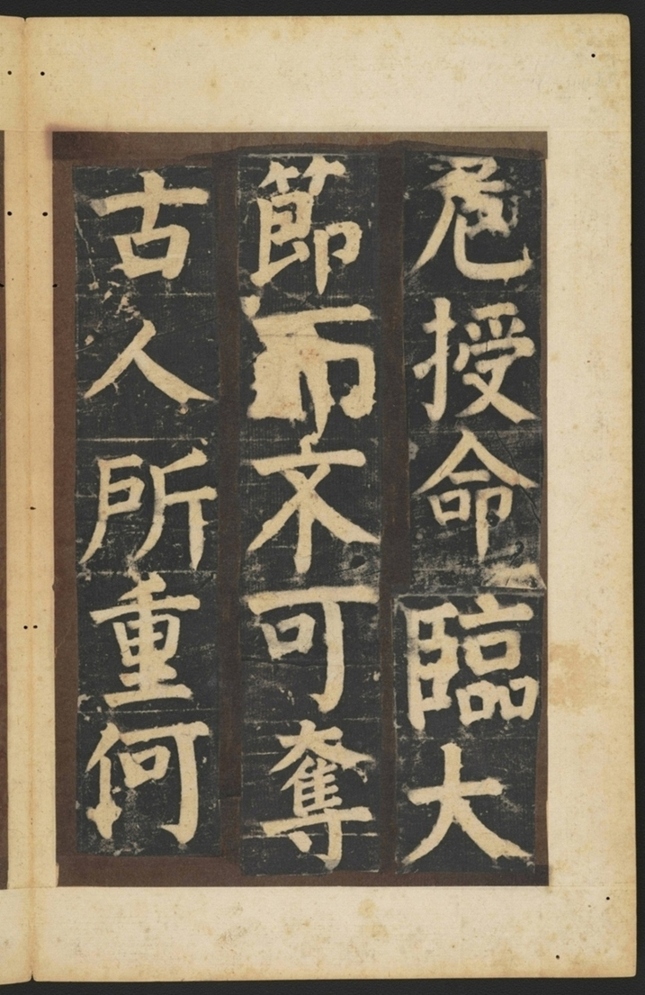 危授命臨大
節而不可奪
古人所重何